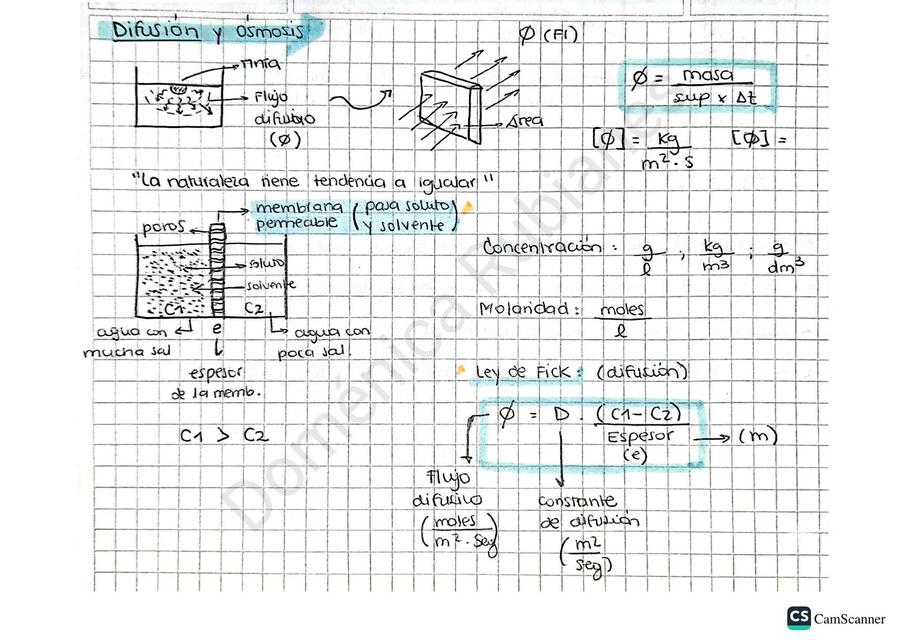 Difusión y ósmosis
Tinta
Flujo
difusivo
(Ø)
Ø (FI)
Área
Ø = masa / sup x Δt
[Ø] = kg / m² . s
[Ø] =
"La naturaleza tiene tendencia a igualar"
poros
membrana permeable (para soluto y solvente)
soluto
solvente
C1
C2
agua con
mucha sal
e
agua con
poca sal.
espesor
de la memb.
C1 > C2
Concentración: g / l ; kg / m3 ; g / dm3
Molaridad: moles / l
Ley de Fick: (difusión)
Ø = D . (C1 - C2) / Espesor (e) → (m)
Flujo
difusivo
(moles / m² . seg)
constante
de difusión
(m2 / seg)
Doménica Rubianes
CS CamScanner